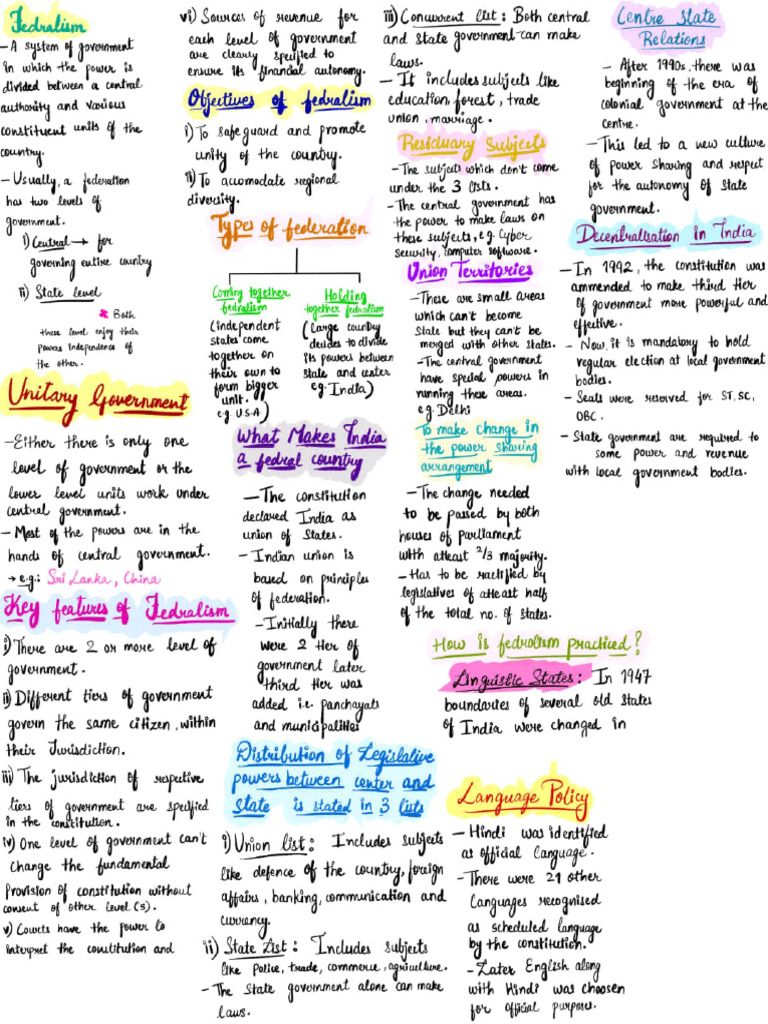 Fedralism
- A system of government
in which the power is
divided between a central
authority and various
constituent units of the
country.
- Usually, a federation
has two levels of
government.
i) Central → for
governing entire country
ii) State level
* Both
these level enjoy their
powers independence of
the other.
Unitary Government
- Either there is only one
level of government or the
lower level units work under
central government.
- Most of the powers are in the
hands of central government.
→ e.g.: Sri Lanka, China
Key features of Fedralism
i) There are 2 or more level of
government.
ii) Different tiers of government
govern the same citizen, within
their Jurisdiction.
iii) The jurisdiction of respective
tiers of government are specified
in the constitution.
iv) One level of government can't
change the fundamental
provision of constitution without
consent of other level (s).
v) Courts have the power to
interpret the constitution and
vi) Sources of revenue for
each level of government
are clearly specified to
ensure its financial autonomy.
Objectives of fedralism
i) To safe guard and promote
unity of the country.
ii) To accomodate regional
diversity.
Types of federation
Coming together
fedralism
(independent
states come
together on
their own to
form bigger
unit.
e.g. U.S.A)
Holding
together fedralism
(Large country
decides to divide
its powers between
state and center
eg. India)
What Makes India
a fedral country
- The constitution
declared India as
union of States.
- Indian union is
based on principles
of federation.
- Initially there
were 2 tier of
government later
third tier was
added i.e. panchayats
and municipalities
Distribution of Legislative
powers between center and
state is stated in 3 lists
i) Union list: Includes subjects
like defence of the country, foreign
affairs, banking, communication and
currency.
ii) State List: Includes subjects
like Police, trade, commerce, agriculture.
- The state government alone can make
laws.
iii) Concurrent list: Both central
and state government can make
laws.
- It includes subjects like
education, forest, trade
union, marriage.
Residuary Subjects
- The subjects which don't come
under the 3 lists.
- The central government has
the power to make laws on
these subjects, e.g. Cyber
Security, computer software.
Union Territories
- These are small areas
which can't become
state but they can't be
merged with other states.
- The central government
have special powers in
running these areas.
e.g. Delhi
To make change in
the power sharing
arrangement
- The change needed
to be passed by both
houses of Parliament
with atleast 2/3 majority.
- Has to be ractified by
legislatives of atleast half
of the total no. of states.
How is fedrolism practiced?
Linguistic States: In 1947
boundaries of several old states
of India were changed in
Language Policy
- Hindi was identified
as official language.
- There were 21 other
Languages recognised
as scheduled language
by the constitution.
- Later English along
with Hindi was choosen
for official purposes.
Centre State
Relations
- After 1990s, there was
beginning of the era of
colonial government at the
centre.
- This led to a new culture
of power sharing and respect
for the autonomy of state
government.
Decentralisation in India
- In 1992, the constitution was
ammended to make third tier
of government more powerful and
effective.
- Now, it is mandatory to hold
regular election at local government
bodies.
- Seats were reserved for ST, SC,
OBC.
- State government are required to
some power and revenue
with local government bodies.